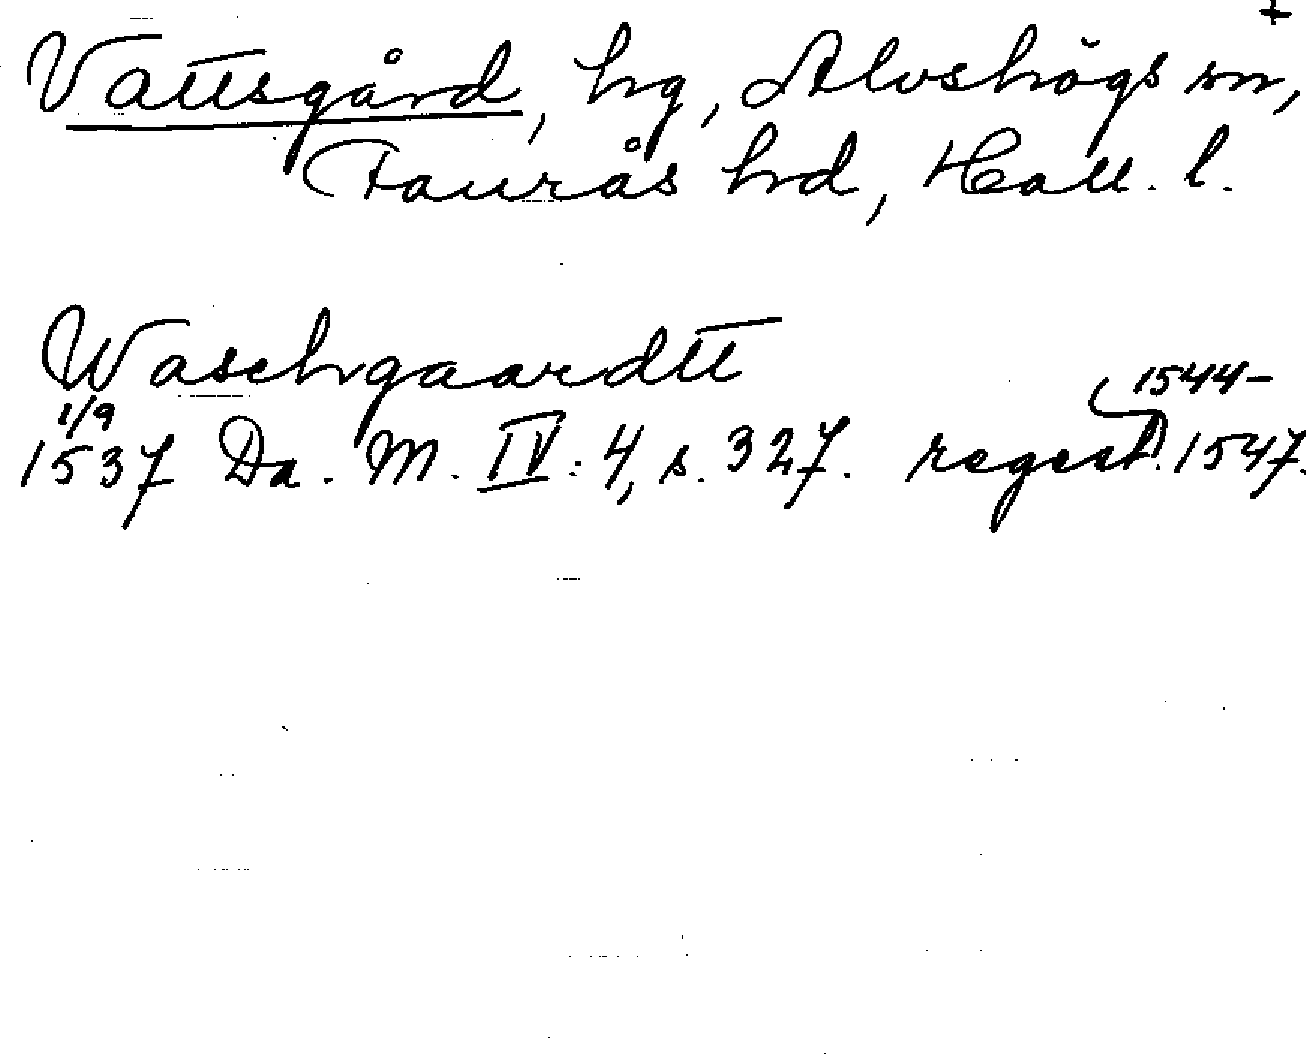 +
Vattsgård, hg, Alvshögs sn,
Faurås hd, Hall. l.
Waschgaardtt
1544-
1/9
1537 Da. M. IV: 4, s. 327. regest. 1547.